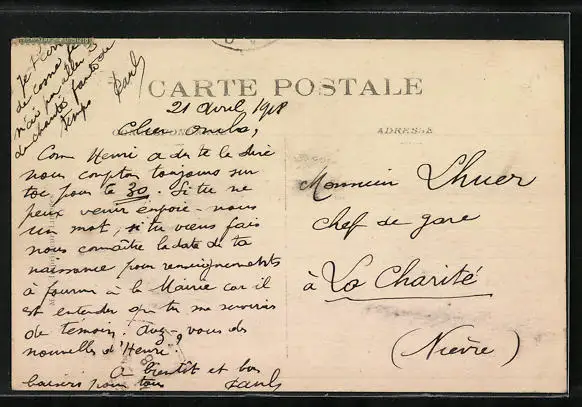 CARTE POSTALE
ADRESSE
21 avril 1918
Cher oncle,
Com Henri a du te le dire
nous compton toujours sur
toi pour le 30. Si tu ne
peux venir envoie-nous
un mot, si tu viens fais
nous connaître la date de ta
naissance pour renseignements
à fournir à la Mairie car il
est entendu que tu me serviras
de témoin. Avez-vous des
nouvelles d'Henri?
A bientôt et bon
baisers pour tous Paul
Je
n'ai pu aller
La Charité faute de
temps
Paul
Monsieur Lhuer
chef de gare
à La Charité
(Nièvre)